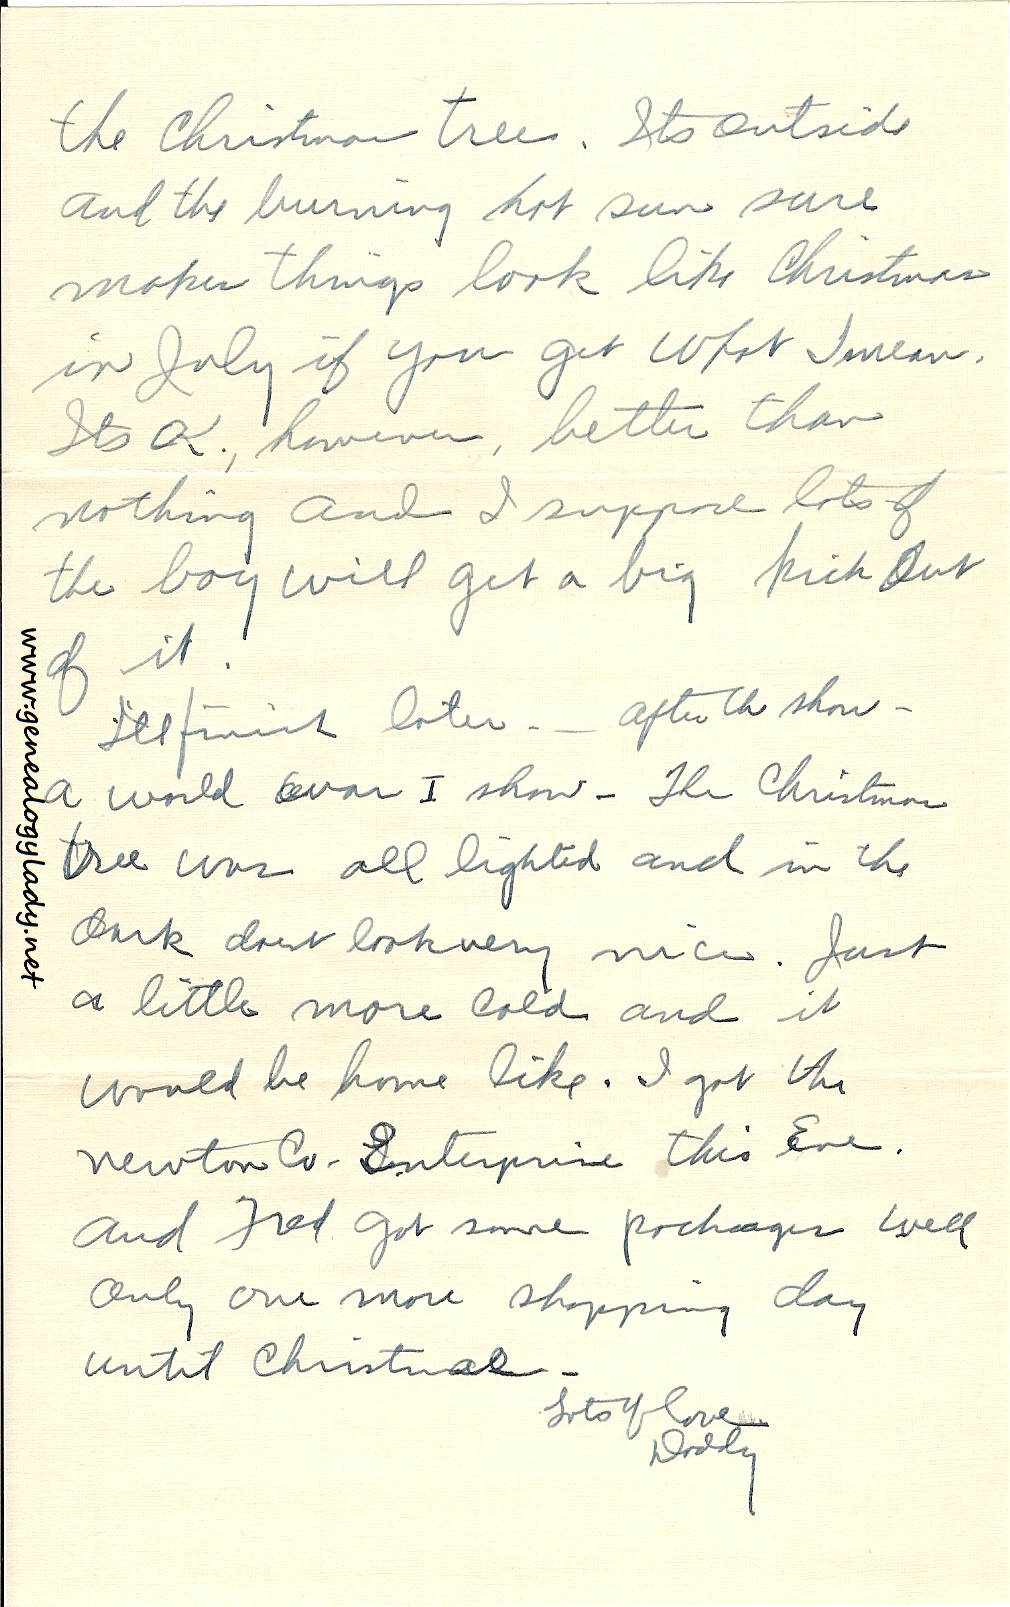 the Christmas tree. Its outside
and the burning hot sun sure
makes things look like Christmas
in July if you get what I mean.
Its OK., however, better than
nothing and I suppose lots of
the boy will get a big kick Out
of it.
I'll finish later - - after the show -
a world war I show - The Christmas
tree was all lighted and in the
dark doesnt look very nice. Just
a little more cold and it
would be home like. I got the
Newton Co. Enterprise this Eve.
and Fred got some packages well
only one more shopping day
until Christmas -
Lots of love
Daddy
www.genealogylady.net